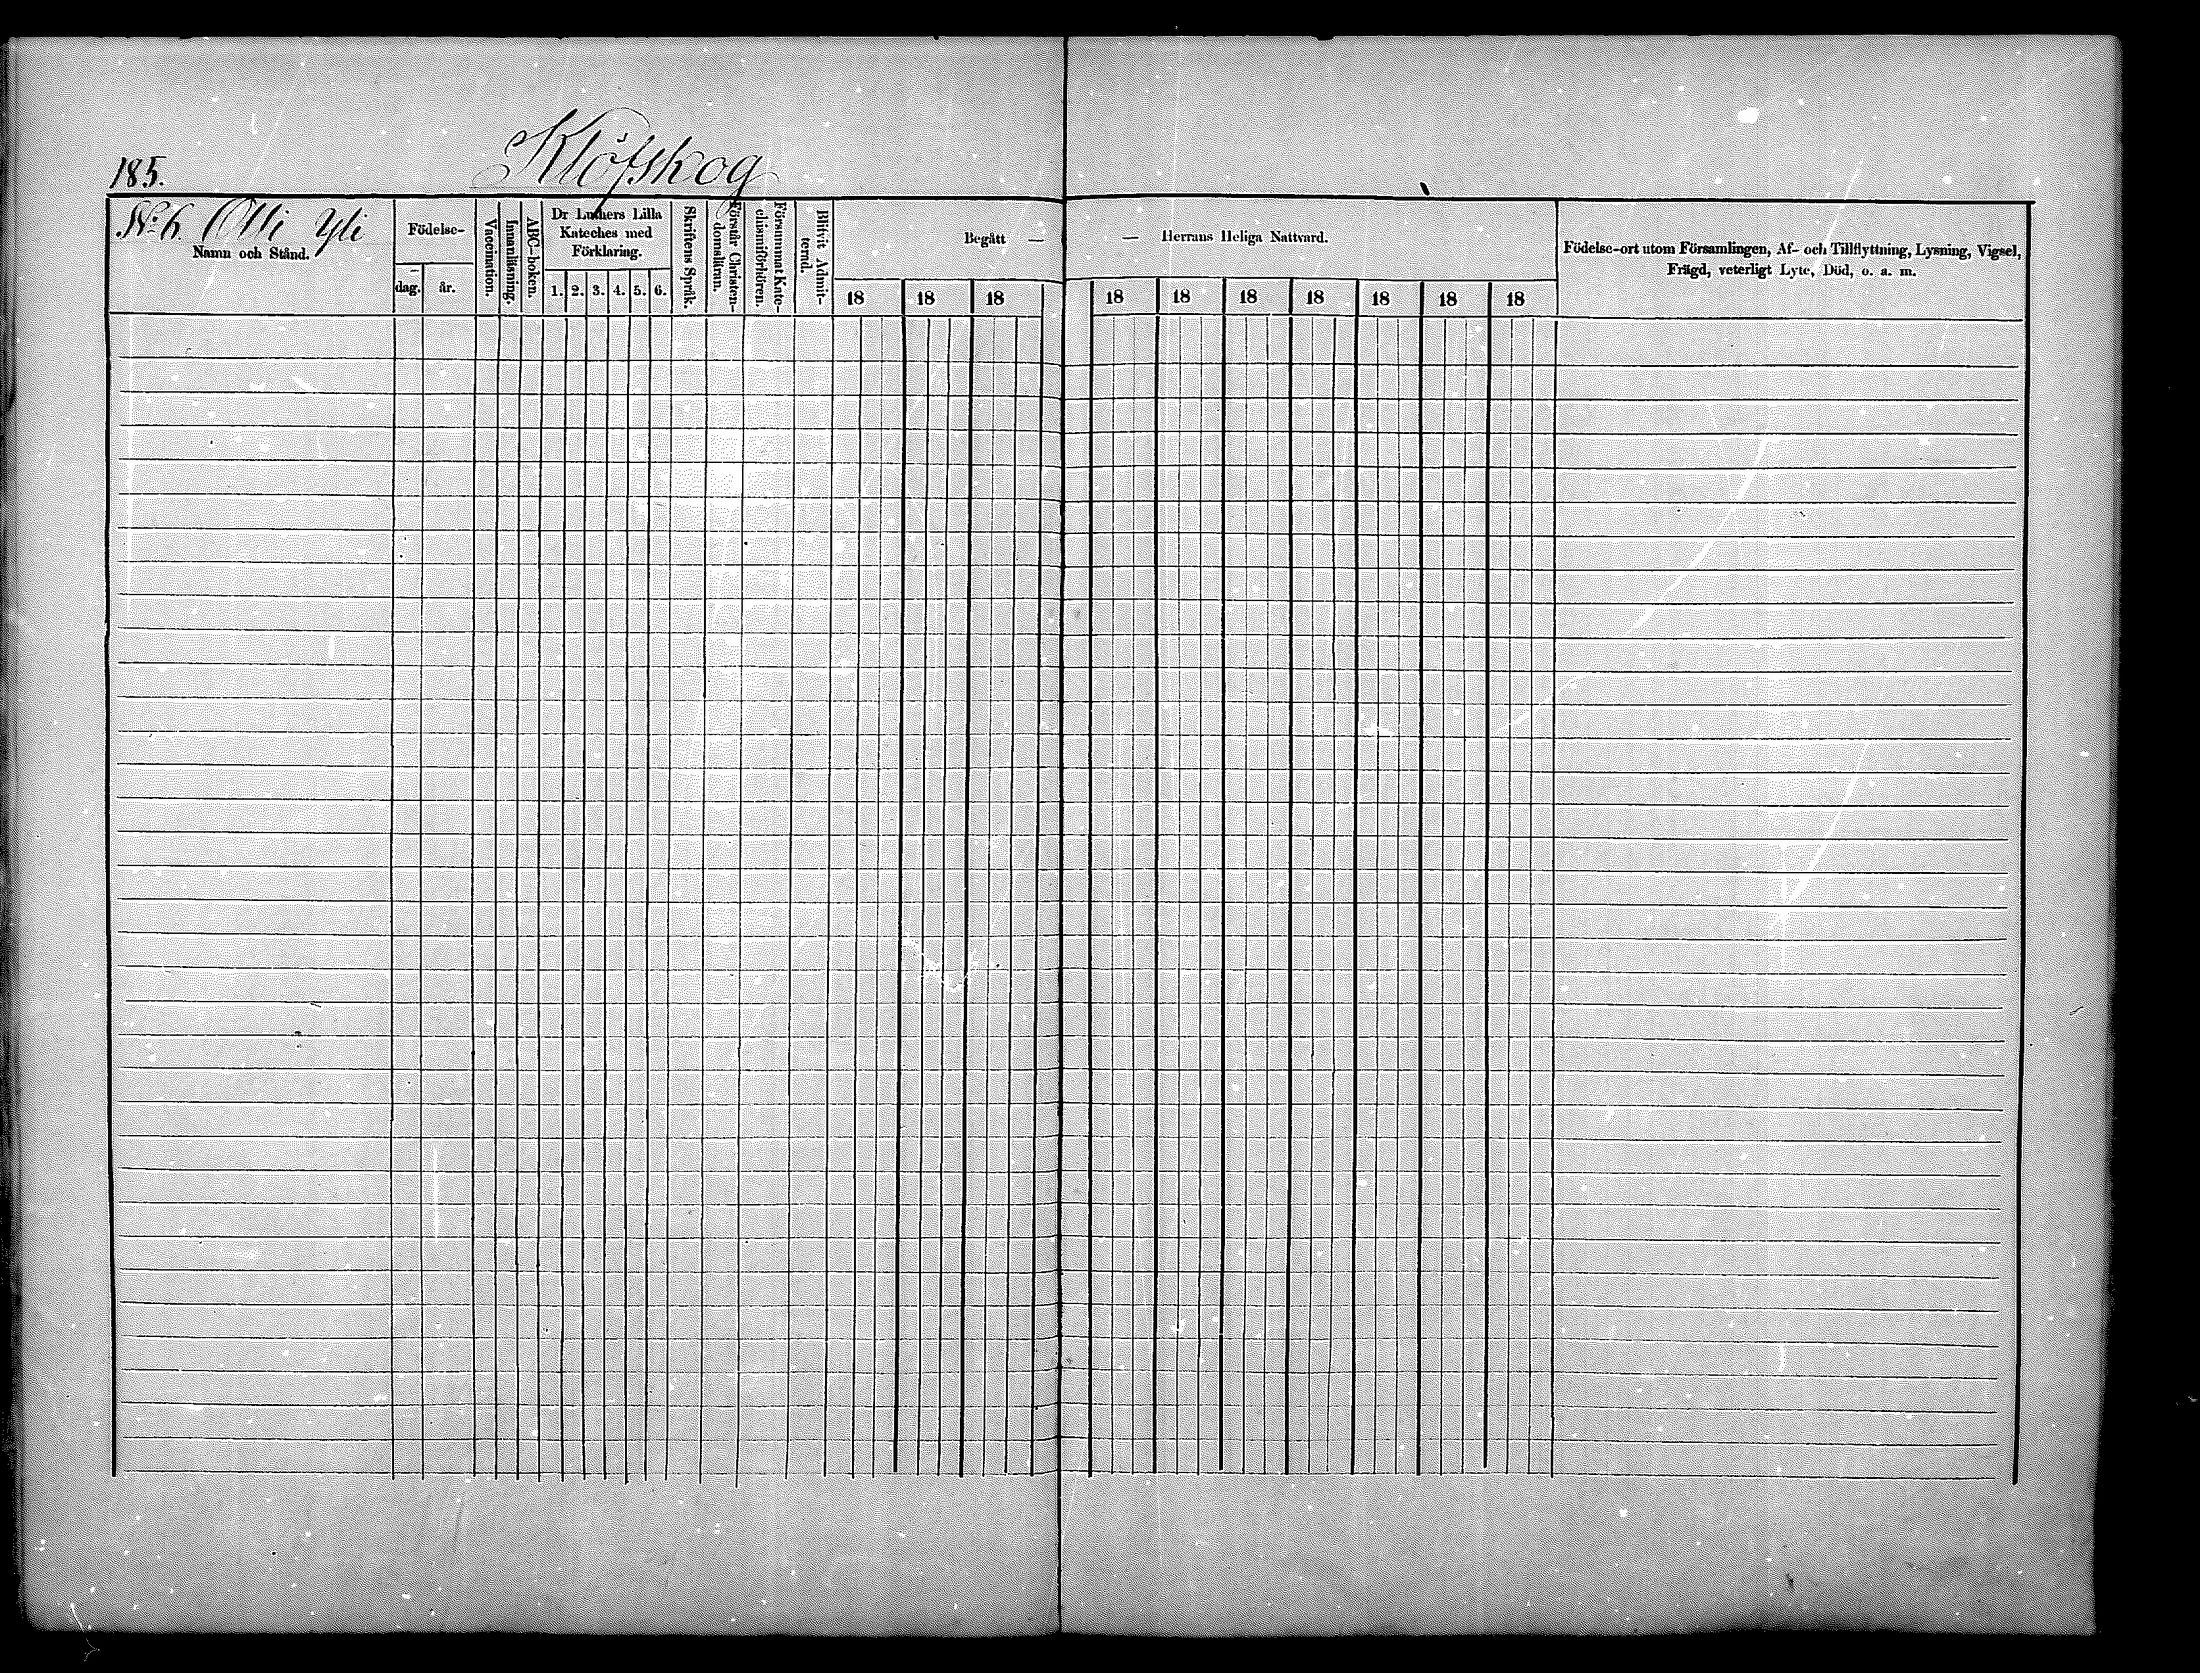 185.
Klöfskog
No 6. Olli Yli
Namn och Stånd.
Födelse-
dag. år.
Vaccination.
Innanläsning.
ABC-boken.
Dr Luthers Lilla
Kateches med
Förklaring.
1. 2. 3. 4. 5. 6.
Skriftens Språk.
Förstår Christen-
domsläran.
Försummat Kate-
chismiförhören.
Blifvit Admit-
terad.
Begått —
18 18 18
— Herrans Heliga Nattvard.
18 18 18 18 18 18 18
Födelse-ort utom Församlingen, Af- och Tillflyttning, Lysning, Vigsel,
Frägd, veterligt Lyte, Död, o. a. m.